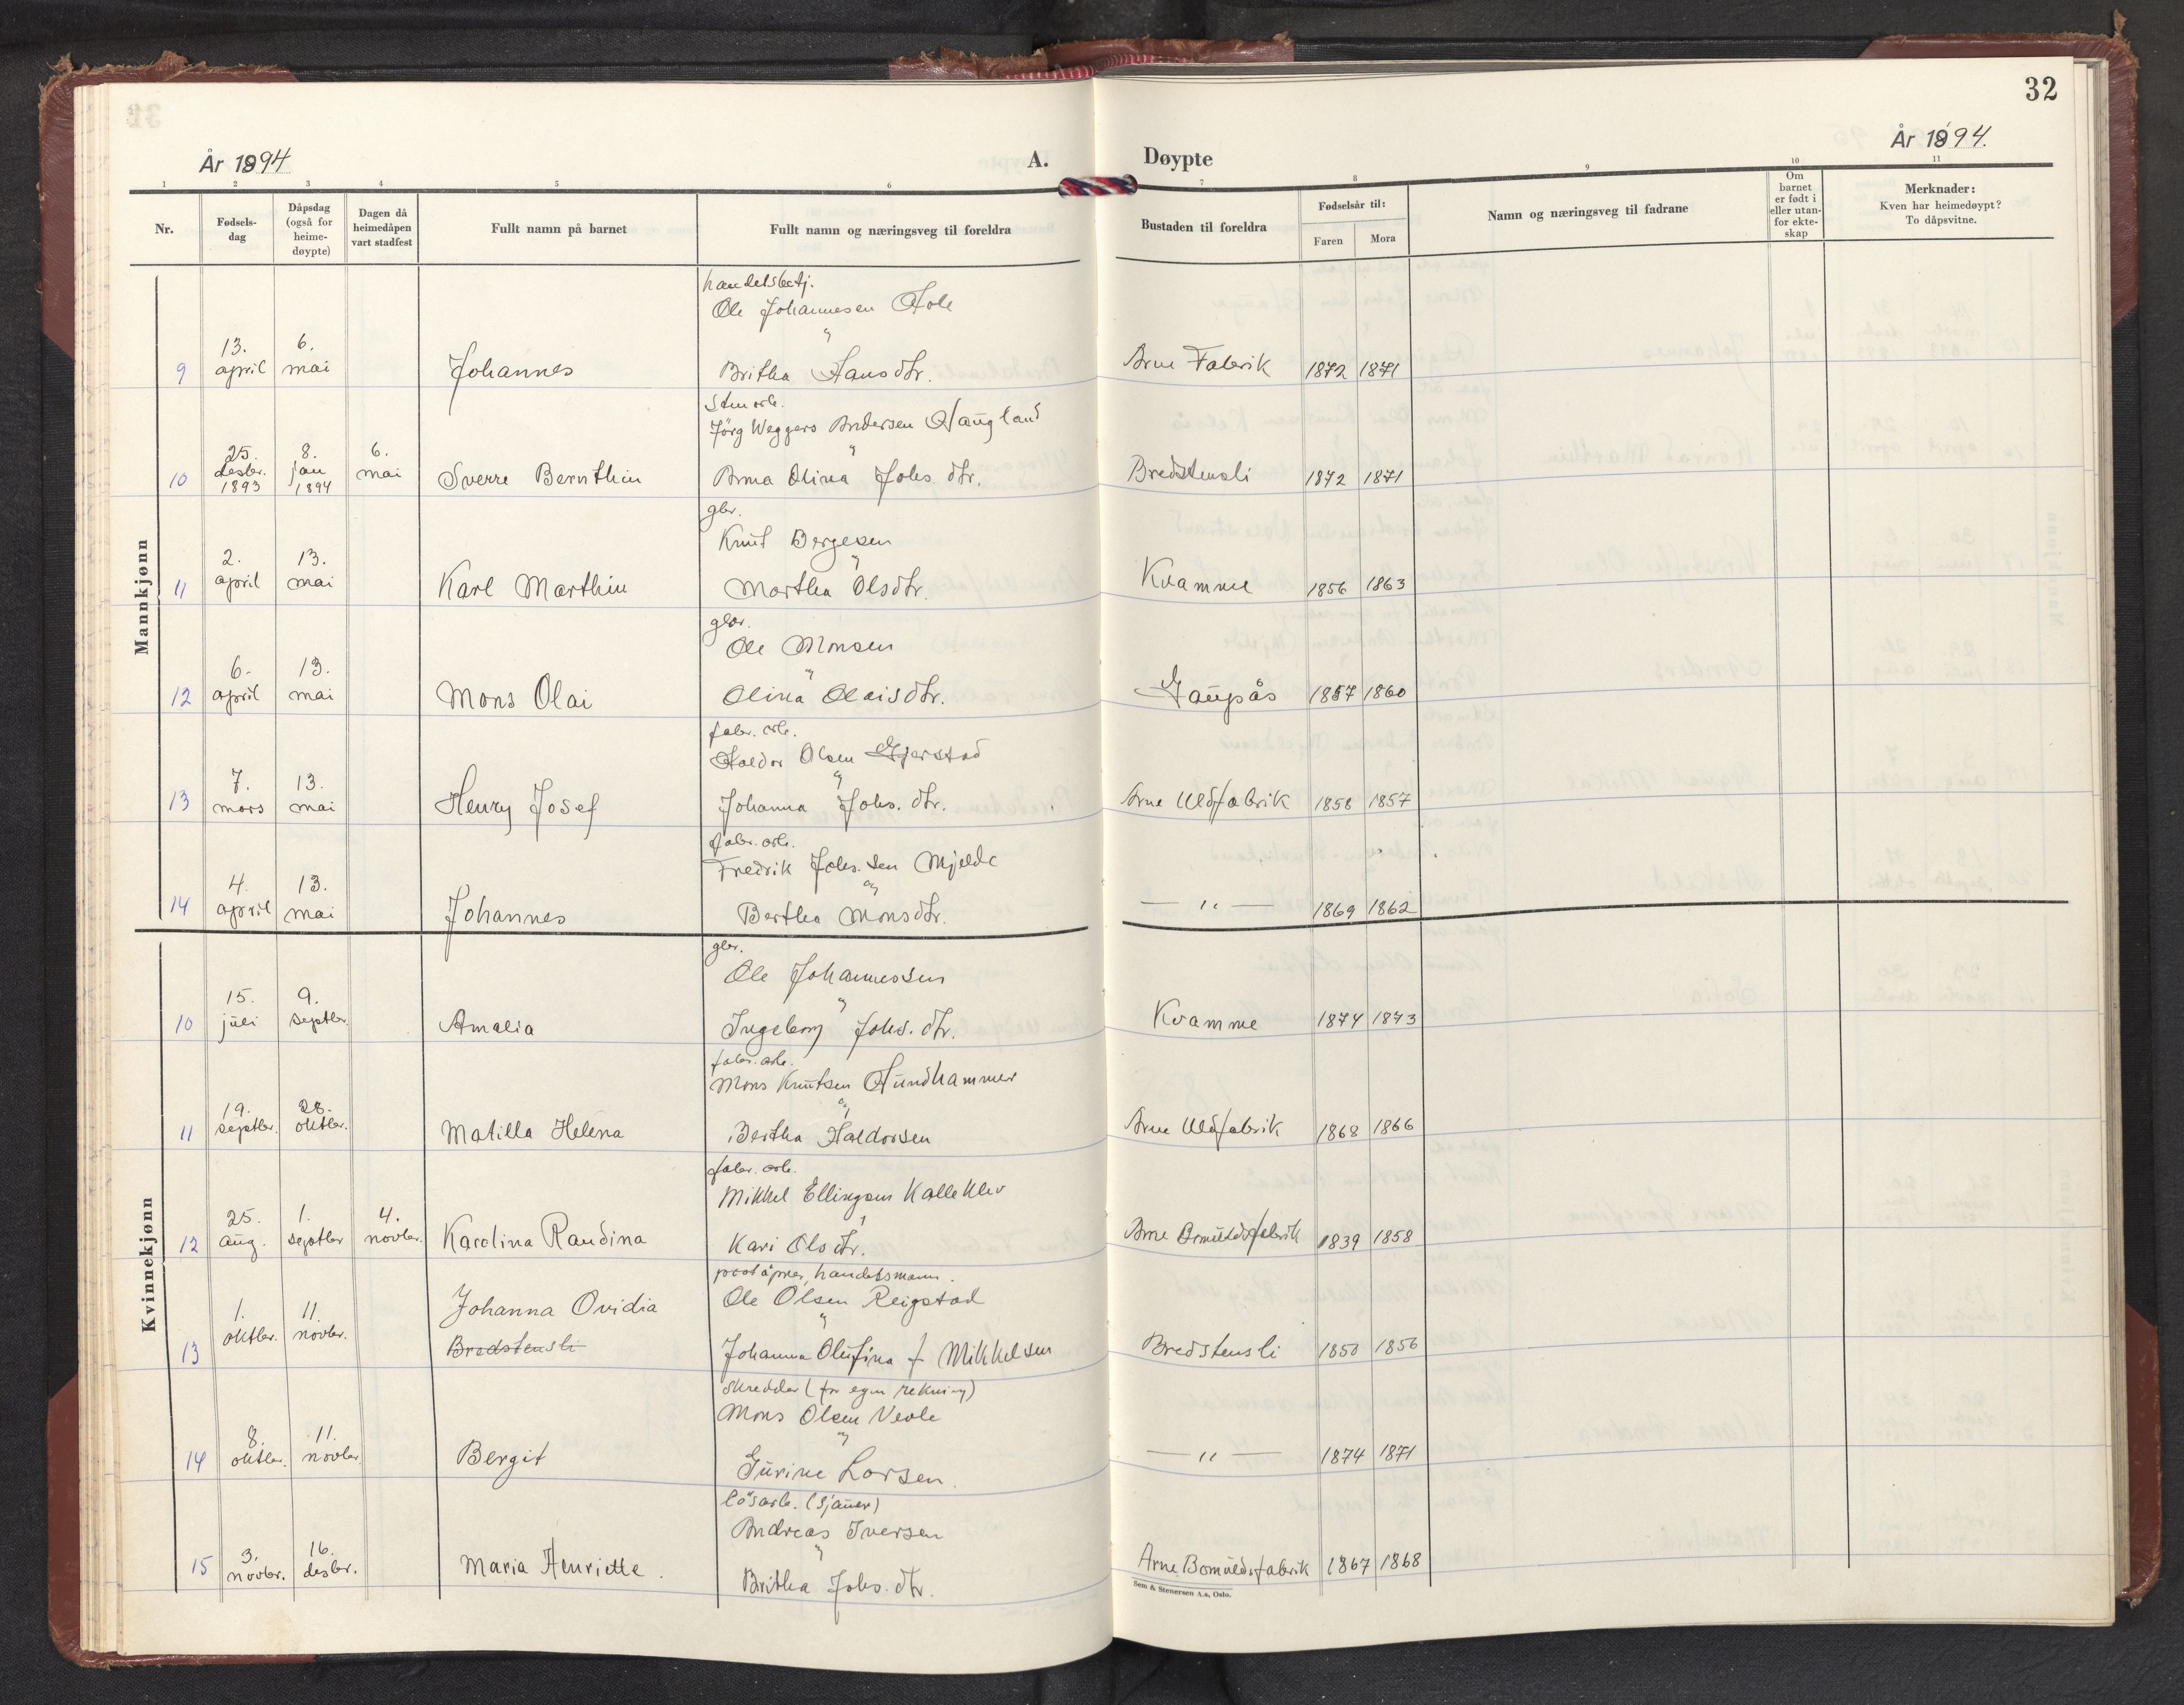 32
År 1894
A.
Døypte
År 1894.
1 2 3 4 5 6 7 8 9 10 11
Nr.
Fødsels-
dag
Dåpsdag
(også for
heime-
døypte)
Dagen då
heimedåpen
vart stadfest
Fullt namn på barnet
Fullt namn og næringsveg til foreldra
Bustaden til foreldra
Fødselsår til:
Faren Mora
Namn og næringsveg til fadrane
Om
barnet
er født i
eller utan-
for ekte-
skap
Merknader:
Kven har heimedøypt?
To dåpsvitne.
Mankjønn
handelsbetj.
Ole Johannesen Hole
og
9 13. april 6. mai Johannes Britha Hansdtr. Arne Fabrik 1872 1871
stenarb.
Jörg Weggers Andersen Haugland
og
10 25. desbr. 1893 8. jan 1894 6. mai Sverre Bernthin Anna Olina Johs. dtr. Bredstensli 1872 1871
gbr.
Knut Bergesen
og
11 2. april 13. mai Karl Marthin Martha Olsdtr. Kvamme 1856 1863
gbr.
Ole Monsen
og
12 6. april 13. mai Mons Olai Olina Olaisdtr. Gaupås 1857 1860
fabr. arb.
Haldor Olsen Gjerstad
og
13 7. mars 13. mai Henry Josef Johanna Johs. dtr. Arne Uldfabrik 1858 1857
fabr. arb.
Fredrik Johs. sen Mjelde
og
14 4. april 13. mai Johannes Bertha Monsdtr. — " — 1869 1862
Kvinnekjønn
gbr.
Ole Johannessen
og
10 15. juli 9. septbr. Amalia Ingeborg Johs. dtr. Kvamme 1874 1873
fabr. arb.
Mons Knutsen Hundhammer
og
11 19. septbr. 28. oktbr. Matilla Helena Bertha Haldorsen Arne Uldfabrik 1868 1866
fabr. arb.
Mikkel Ellingsen Kalleklev
12 25. aug. 1. septbr 4. novbr. Karolina Randina Kari Olsdtr. Arne Bomuldsfabrik 1839 1858
poståpner, handelsmann.
Johanna Ovidia Ole Olsen Reigstad
og
13 1. oktbr. 11. novbr. Bredstensli Johanna Olufina f Mikkelsen Bredstensli 1850 1856
skredder (for egen rekning)
Mons Olsen Vevle
og
14 8. oktbr. 11. novbr. Bergit Gurine Larsen. — " — 1874 1871
lösarb. (sjauer)
Andreas Iversen
og
15 3. novbr. 16. desbr. Maria Henriette. Britha Johs. dtr. Arne Bomuldsfabrik 1867 1868
Sem & Stenersen A.s, Oslo.